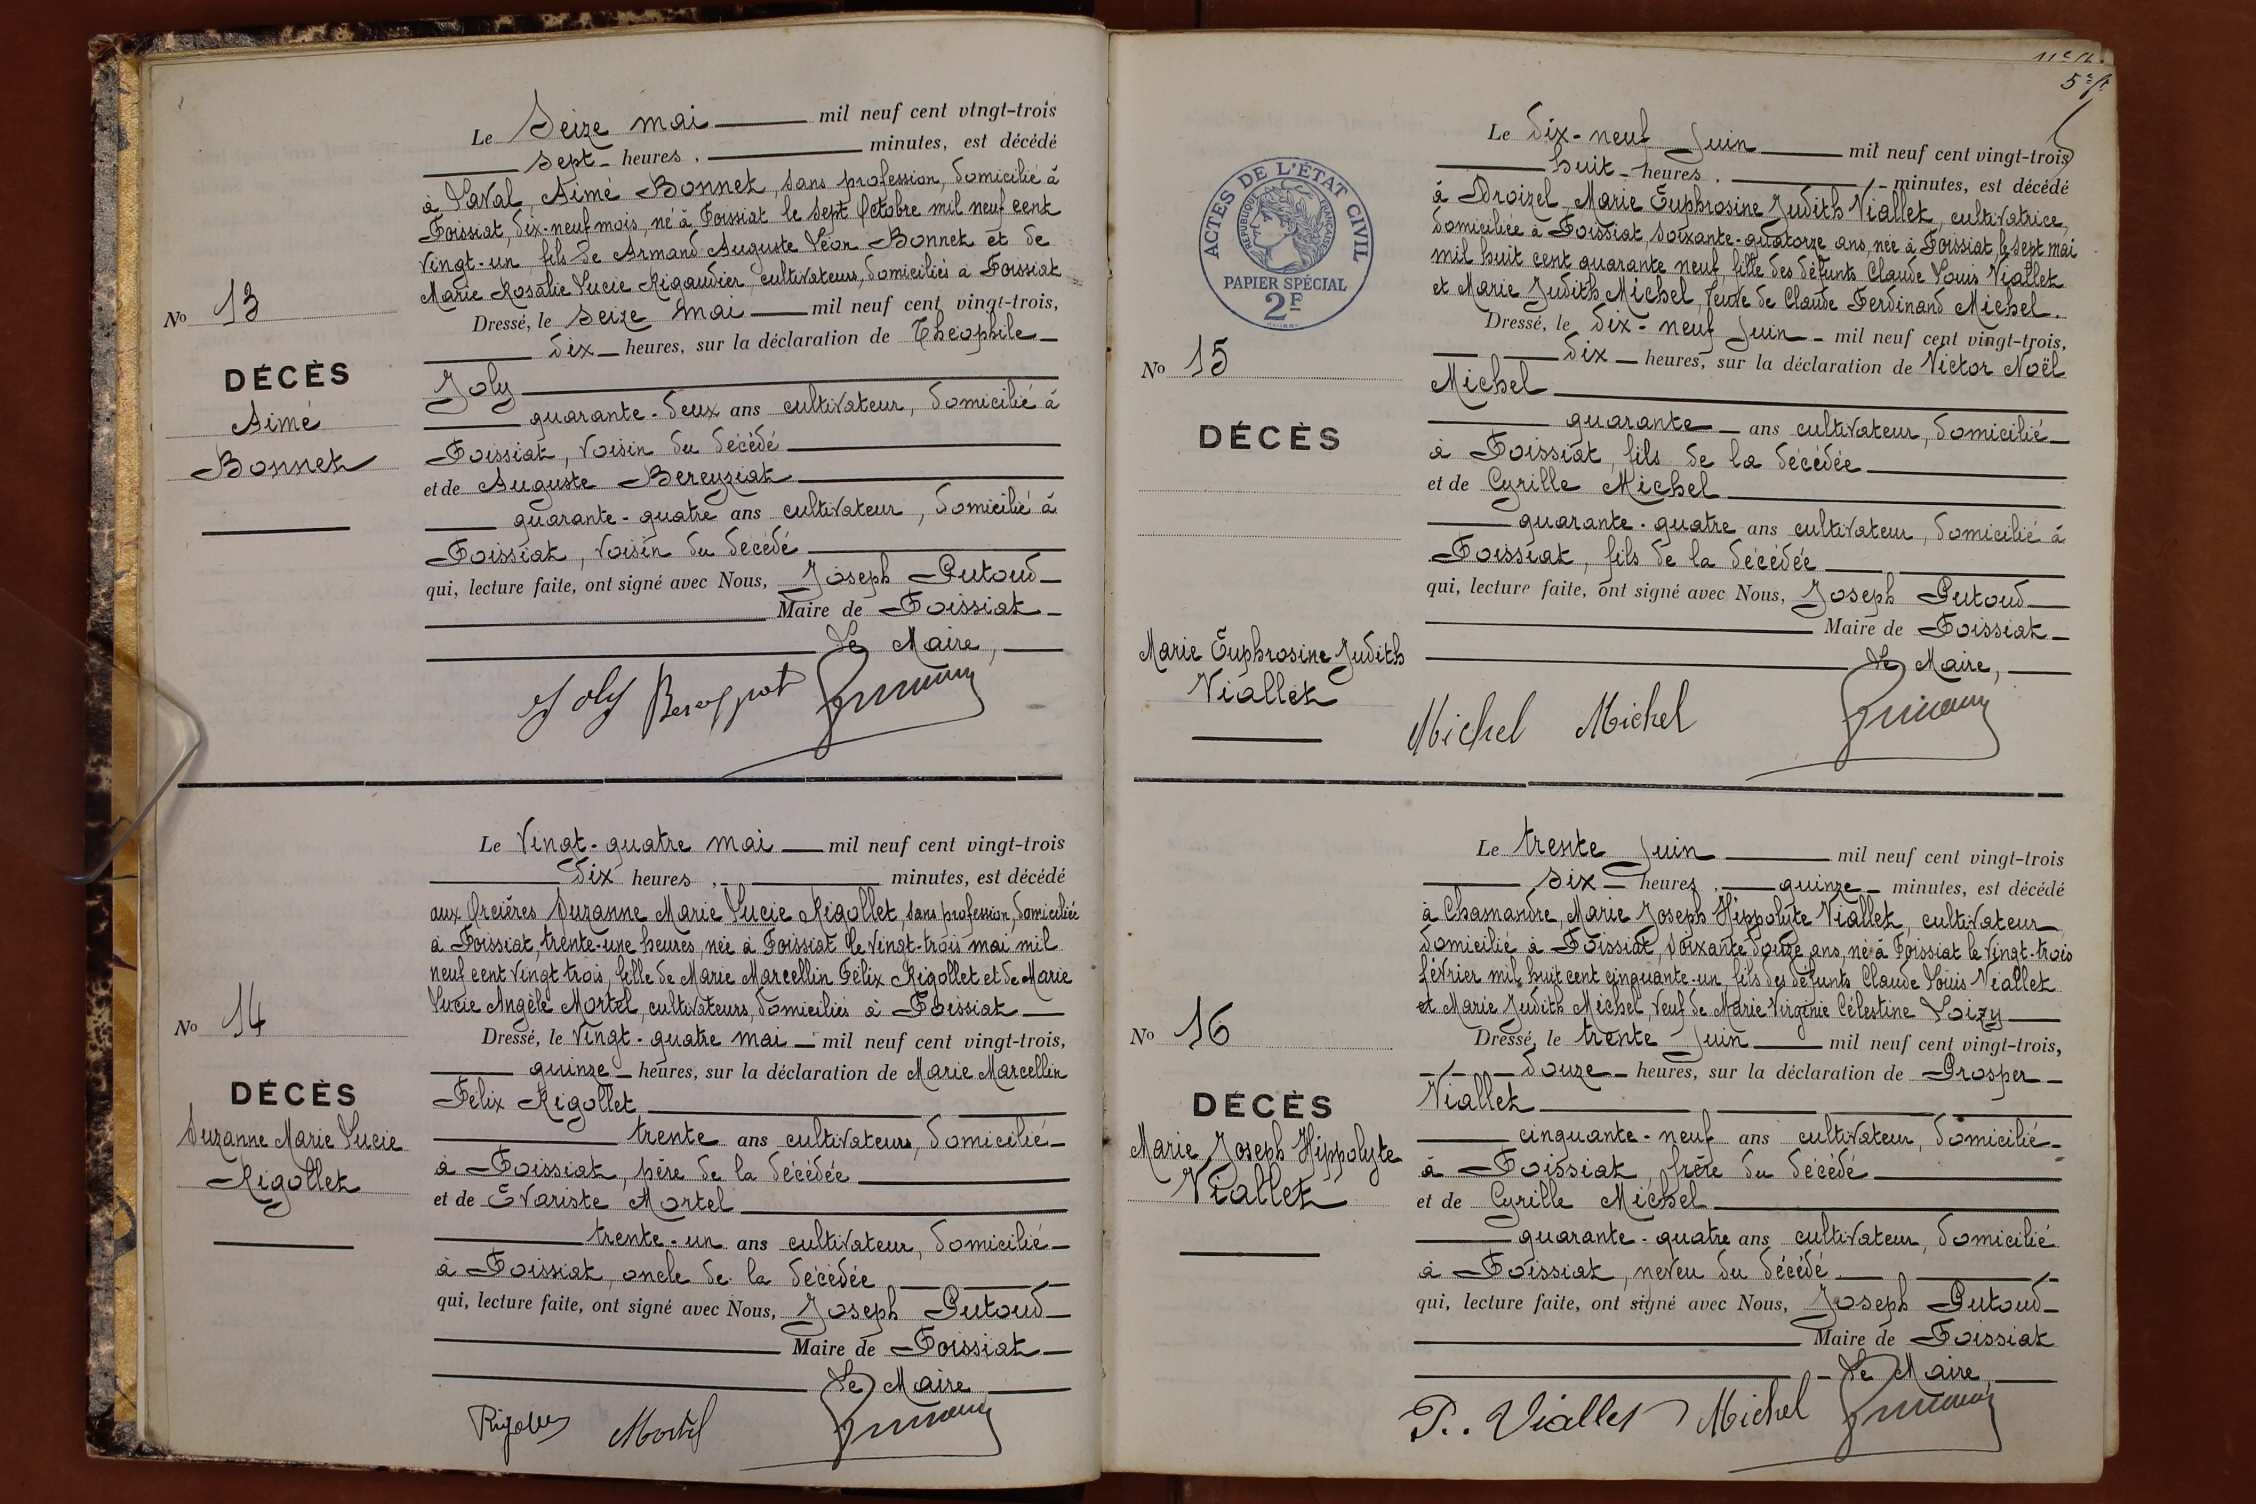 Le Seize mai mil neuf cent vingt-trois
sept heures, minutes, est décédé
à Laval, Aimé Bonnet, sans profession, domicilié à
Foissiat, dix-neuf mois, né à Foissiat le sept Octobre mil neuf cent
vingt-un, fils de Armand Auguste Léon Bonnet et de
Marie Rosalie Lucie Rigaudier, cultivateurs, domiciliés à Foissiat
Dressé, le seize mai mil neuf cent vingt-trois,
dix heures, sur la déclaration de Théophile
Joly
quarante-deux ans cultivateur, domicilié à
Foissiat, voisin du décédé
et de Auguste Bereyziat
quarante-quatre ans cultivateur, domicilié à
Foissiat, voisin du décédé
qui, lecture faite, ont signé avec Nous, Joseph Putoud
Maire de Foissiat
Le Maire,
Joly Bereyziat
No 13
DÉCÈS
Aimé
Bonnet
Le Vingt-quatre mai mil neuf cent vingt-trois
dix heures, minutes, est décédé
aux Orcières Suzanne Marie Lucie Rigollet, sans profession, domiciliée
à Foissiat, trente-une heures, née à Foissiat le vingt-trois mai mil
neuf cent vingt trois, fille de Marie Marcellin Félix Rigollet et de Marie
Lucie Angèle Mortel, cultivateurs, domiciliés à Foissiat
Dressé, le vingt-quatre mai mil neuf cent vingt-trois,
quinze heures, sur la déclaration de Marie Marcellin
Félix Rigollet
trente ans cultivateur, domicilié
à Foissiat, père de la décédée
et de Evariste Mortel
trente-un ans cultivateur, domicilié
à Foissiat, oncle de la décédée
qui, lecture faite, ont signé avec Nous, Joseph Putoud
Maire de Foissiat
Le Maire
Rigollet Mortel
No 14
DÉCÈS
Suzanne Marie Lucie
Rigollet
11e ft
5e ft
ACTES DE L'ÉTAT CIVIL
RÉPUBLIQUE FRANÇAISE
PAPIER SPÉCIAL
2F
Le dix-neuf Juin mil neuf cent vingt-trois
huit heures, minutes, est décédé
à Droizel, Marie Euphrosine Judith Viallet, cultivatrice,
domiciliée à Foissiat, soixante-quatorze ans, née à Foissiat, le sept mai
mil huit cent quarante neuf, fille des défunts Claude Louis Viallet
et Marie Judith Michel, Veuve de Claude Ferdinand Michel.
Dressé, le dix-neuf Juin mil neuf cent vingt-trois,
dix heures, sur la déclaration de Victor Noël
Michel
quarante ans cultivateur, domicilié
à Foissiat, fils de la décédée
et de Cyrille Michel
quarante-quatre ans cultivateur, domicilié à
Foissiat, fils de la décédée
qui, lecture faite, ont signé avec Nous, Joseph Putoud
Maire de Foissiat
Le Maire,
Michel Michel
No 15
DÉCÈS
Marie Euphrosine Judith
Viallet
Le trente Juin mil neuf cent vingt-trois
six heures, quinze minutes, est décédé
à Chamandre, Marie Joseph Hippolyte Viallet, cultivateur
domicilié à Foissiat, soixante douze ans, né à Foissiat le vingt-trois
février mil huit cent cinquante-un, fils des défunts Claude Louis Viallet
et Marie Judith Michel, Veuf de Marie Virginie Célestine Loizy
Dressé, le trente Juin mil neuf cent vingt-trois,
douze heures, sur la déclaration de Prosper
Viallet
cinquante-neuf ans cultivateur, domicilié
à Foissiat, frère du décédé
et de Cyrille Michel
quarante-quatre ans cultivateur, domicilié
à Foissiat, neveu du décédé
qui, lecture faite, ont signé avec Nous, Joseph Putoud
Maire de Foissiat
Le Maire,
P. Viallet Michel
No 16
DÉCÈS
Marie Joseph Hippolyte
Viallet